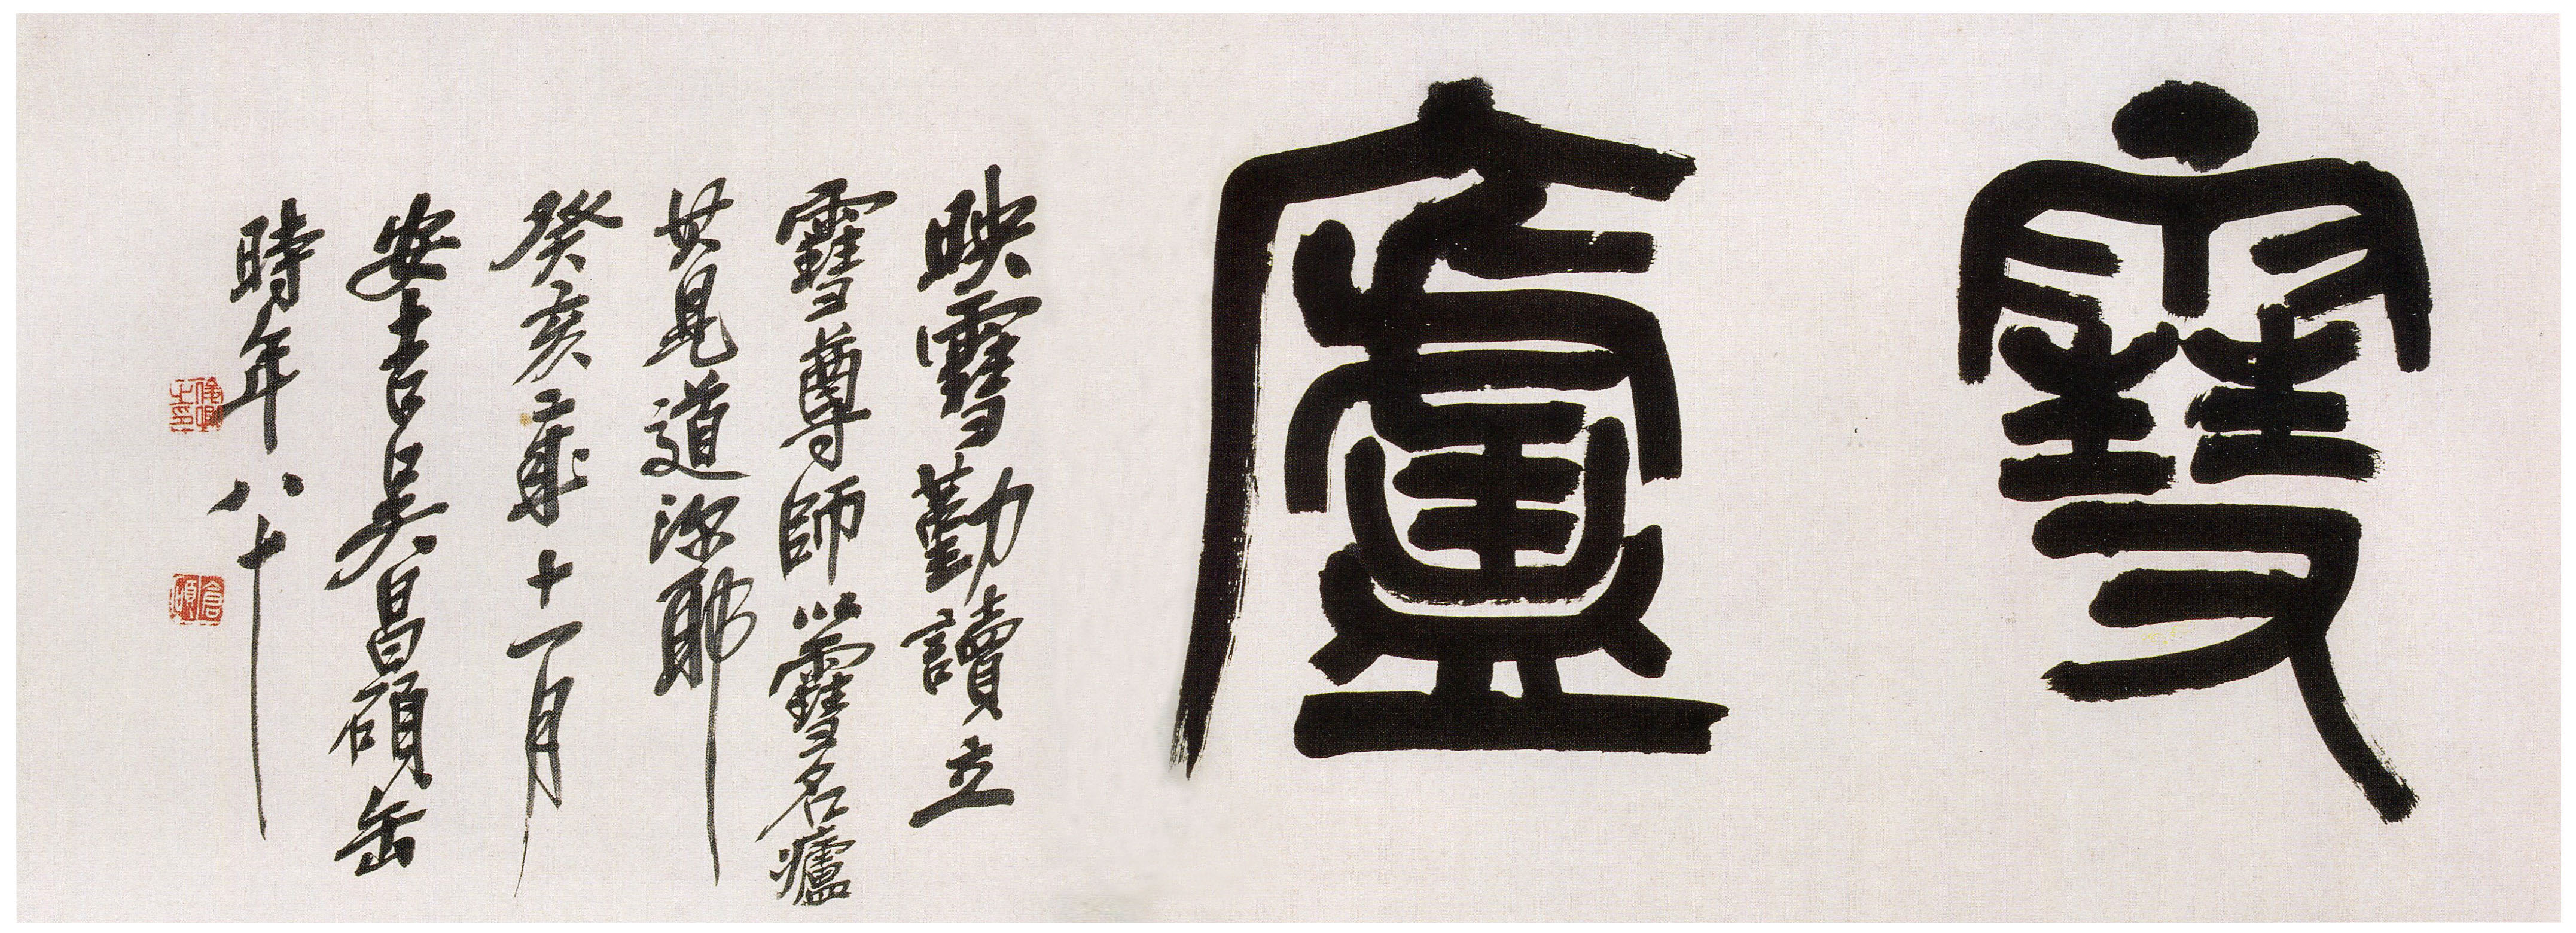 雪廬
映雪勤讀立
雪尊師以雪名廬
其見道深耶
癸亥歲十一月
安吉吳昌碩缶
時年八十
俊卿之印
倉碩